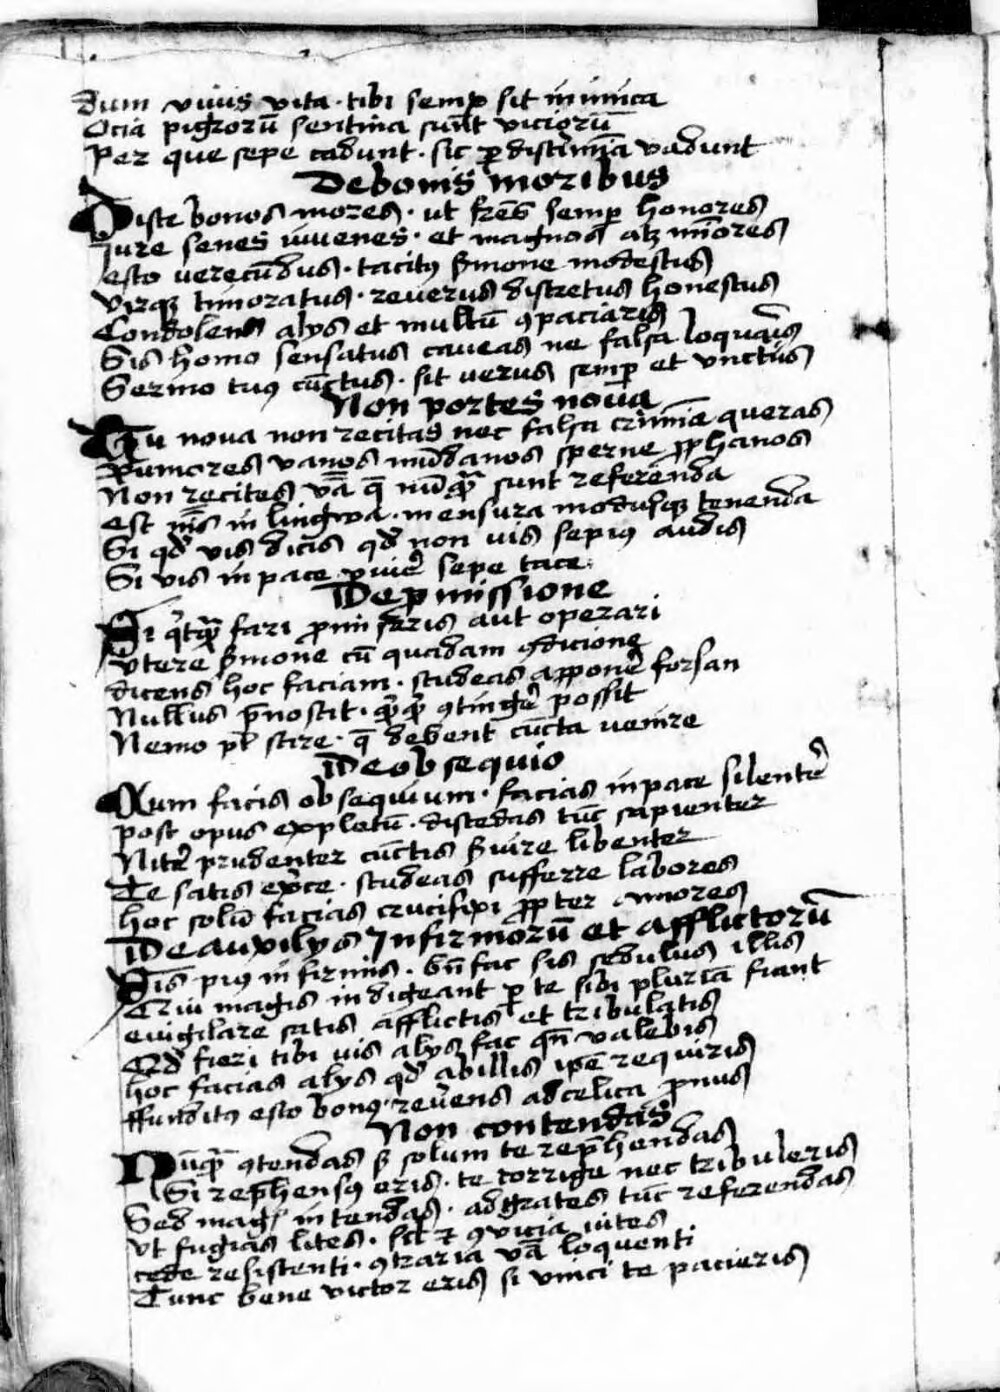 dum viuis vita · tibi semꝑ sit inimica
Ocia pigrorū sentina sunt viciorū
Per que sepe cadunt · sic ꝑ discrimīa vadunt
De bonis moribus
Disce bonos mores · ut fr̄es semꝑ honores
Iure senes iuuenes · et magnos atqꝫ mīores
esto verecūdus · tacitꝰ ẜmone modestus
virqꝫ timoratus · reuerus discretus honestus
Condolens alijs et multū ꝯpaciaris
Sis homo sensatus caueas ne falsa loquaris
Sermo tuꝰ cūctus · sit verus semꝑ et vnctus
Non portes noua
Tu noua non recitas nec falsa crimīa queras
Rumores vanos mūdanos sperne ꝓphanos
Non recites vā q̄ nūqͣ sunt referenda
est in lingwa · mensura modusqꝫ tenenda
Si qd̄ vis dicis qd̄ non uis sepiꝰ audis
Si vis in pace viuẽ sepe tace
De ꝓmissione
Si fari ꝓmiseris aut operari
vtere ẜmone cū quadam ꝯdicione
dicens hoc faciam · studeas apponẽ forsan
Nullus p̄noscit · ꝯtingẽ possit
Nemo pt̄ scire · q̄ debent cūcta uenire
De obsequio
Dum facis obsequium · facias in pace silentẽ
post opus expletū · discedas tūc sapienter
Nitẽ prudenter cūctis ẜuire libenter
Te satis exẽce · studeas sufferre labores
hoc solū facias crucifixi ꝓpter amores
De auxilijs Infirmorū et afflictorū
Sis piꝰ in firmis · bn̄fac sis sedulus illis
magis indigeant ꝑ te sibi plurīa fiant
euigilare satis afflictis et tribulatis
Qd̄ fieri tibi uis alijs fac qn̄ valebis
hoc facias alijs qd̄ ab illis ip̄e requiris
ffunditꝰ esto bonꝰ · reuẽens ad celica ꝓnus
Non contendas
Nūqͣ ꝯtendas ẜ solum te rep̄hendas
Si rep̄hensꝰ eris · te corrige nec tribuleris
Sed magis intendas · ad grates tūc referendas
vt fugias lites · ꝯuicia uites
cede resistenti · ꝯtraria vā loquenti
Tunc bene victor eris si vinci te pacieris